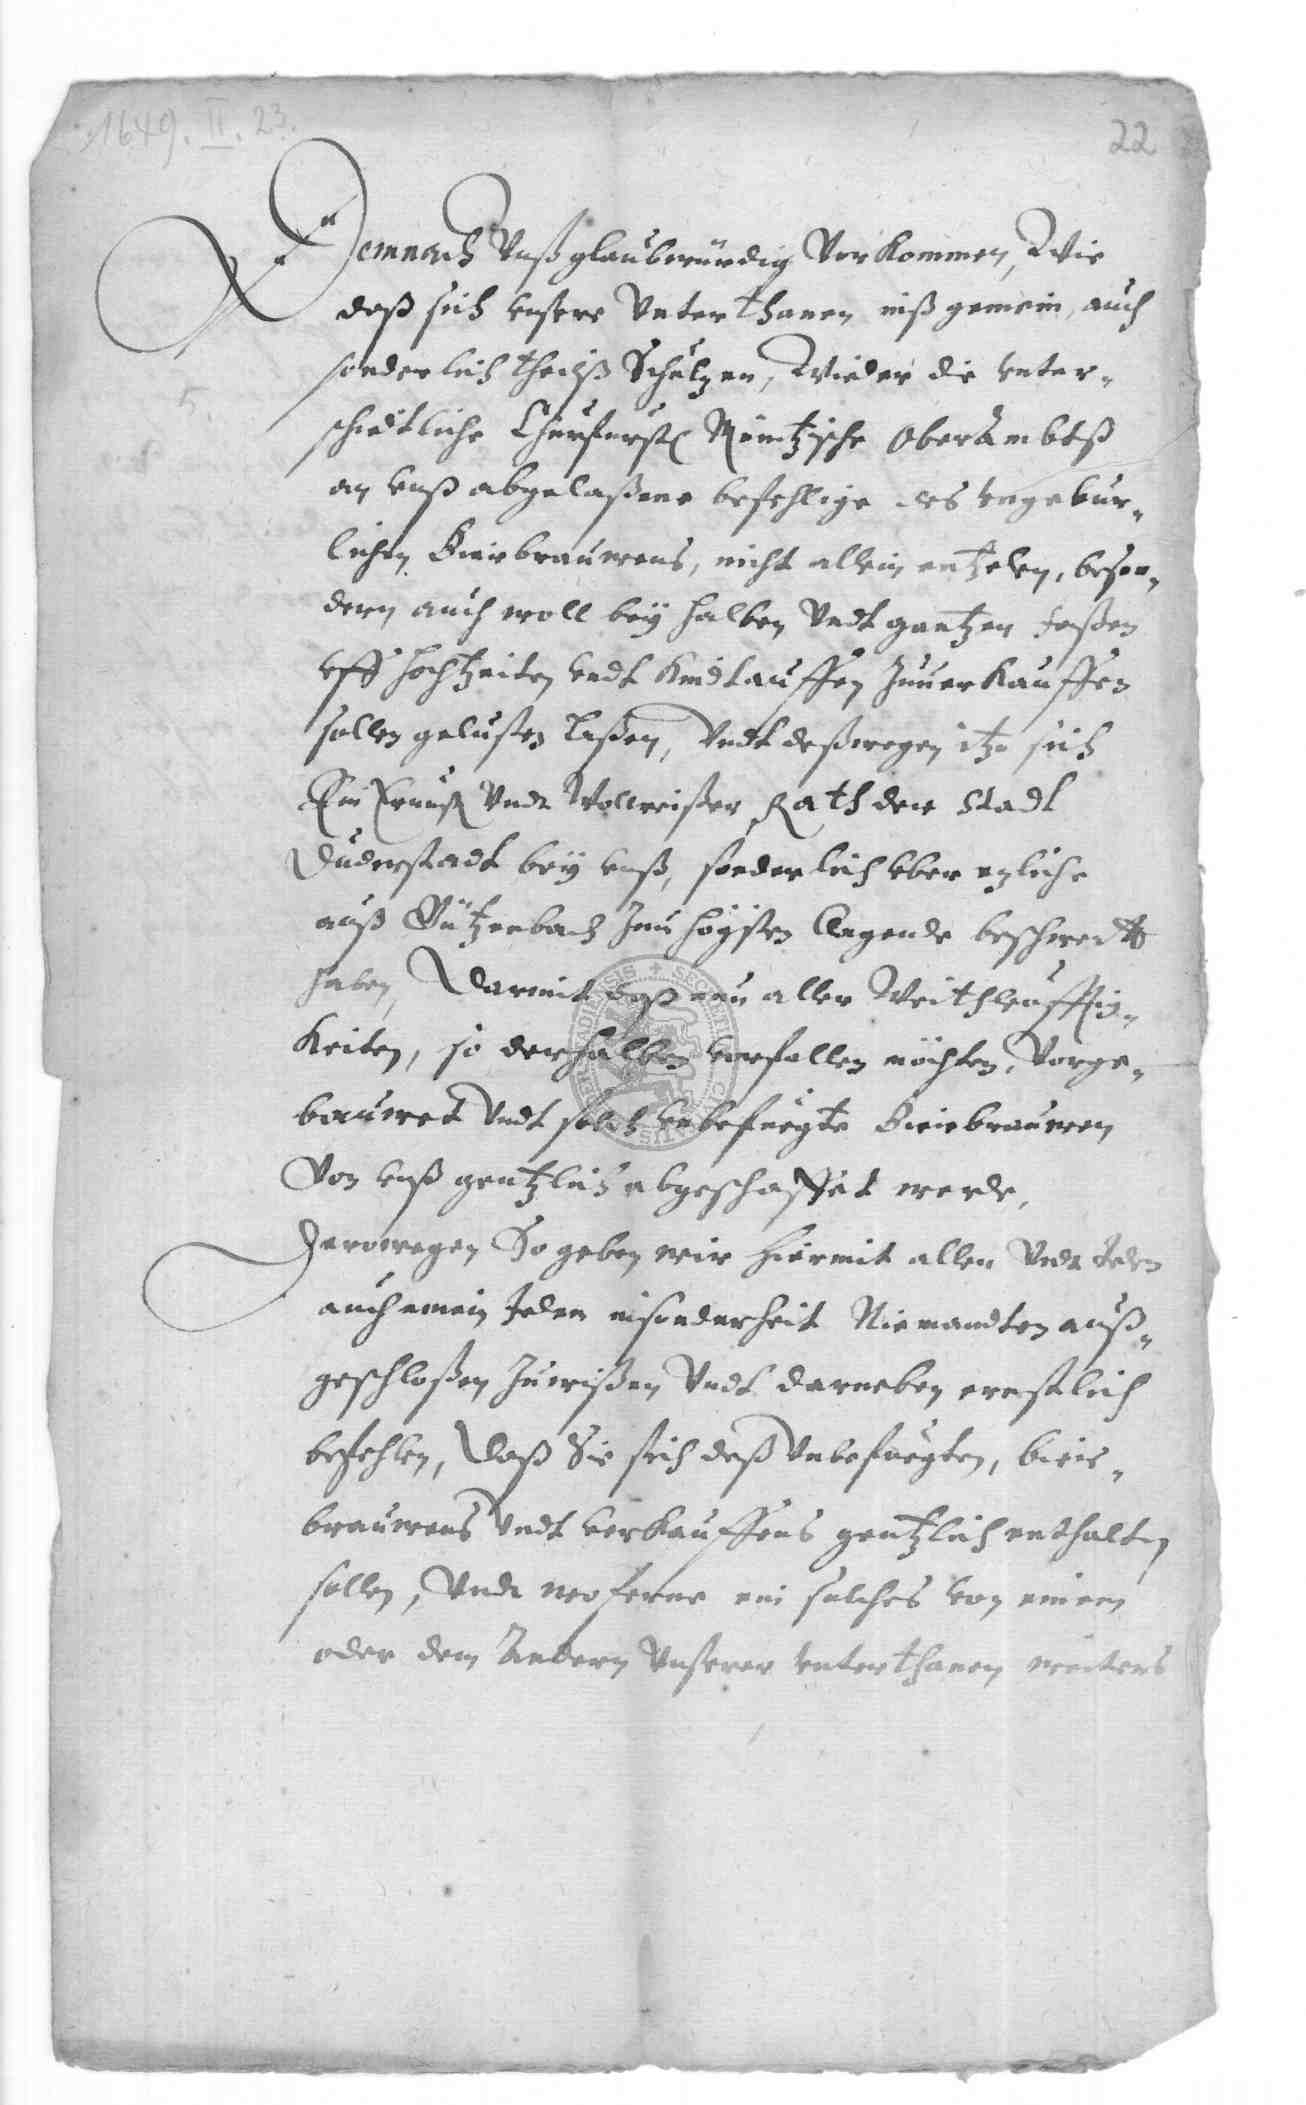 1649. II. 23.
22
Demnach Vnß glaubwürdig Vorkommen, Wie
daß sich vnsere Vnterthanen inß gemein, auch
sonderlich theilß Schultzen, Wieder die vnter-
schiedtliche Churfurstl Mäintzische Oberambtß
an vnß abgelaßene befehlige des vngebur-
lichen Bierbrauwens, nicht allein entzelen, beson-
dern auch woll bey halben Vndt gantzen faßen
vff hochtzeiten vndt kindtauffen Zuuerkauffen
sollen gelusten laßen, Vndt deßwegen itzo sich
Ein Ernust Vndt Wollweißer Rath der Stadt
Duderstadt bey vnß, sonderlich vber etzliche
auß Gützenbach Zum högsten Clagende beschwert
haben, Darmit daß nun aller Weithleuffig-
keiten, so derhalben vorfallen möchten, Vorge-
bauwet Vndt solch vnbefuegte Bierbrauwen
Von vnß gentzlich abgeschaffet werde,
Derowegen So geben wir hiermit allen Vndt Jeden
auch einem Jeden insonderheit Niemandten auß-
geschloßen Zuwißen Vndt darneben ernstlich
befehlen, Daß Sie sich deß Vnbefuegten, bier-
brauwens Vndt verkauffens gentzlich enthalten
sollen, Vndt wo ferne ein solches von einem
oder dem Andern Vnserer vnterthanen weiters